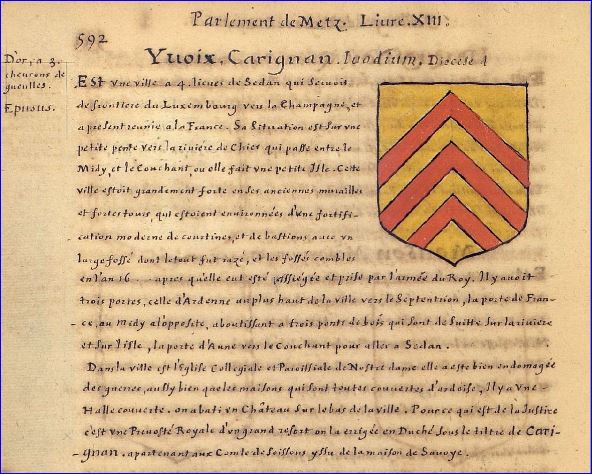 Parlement de Metz. Liure. XIII.
592
Yuoix, Carignan. Iuodium, Diocese d
D'or, a 3.
cheurons de
gueulles.
Epusus.
Est vne ville a 4. lieues de Sedan qui seruois
de frontiere du Luxembourg vers la Champagne, et
a present reunie a la France. Sa situation est sur vne
petite pente vers la riuiere de Chiers qui passe entre le
Midy, et le Couchant, ou elle fait vne petite Isle. Cette
ville estoit grandement forte en ses anciennes murailles
et fortes tours, qui estoient enuironnées d'vne fortifi-
cation moderne de courtines, et de bastions auec vn
large fossé dont le tout fut razé, et les fossez comblés
en l'an 16 apres qu'elle eut esté assiegée et prise par l'armée du Roy. Il y auoit
trois portes, celle d'Ardenne au plus haut de la ville vers le Septentrion, la porte de Fran-
-ce, au Midy a l'opposite, aboutissant a trois ponts de bois qui sont de suitte sur la riuiere
et sur l'isle, la porte d'Aune vers le Couchant pour aller a Sedan.
Dans la ville est l'Eglise Collegiale et Paroissiale de Nostre dame elle a esté bien endomagée
des guerres, aussy bien que les maisons qui sont toutes couuertes d'ardoise, Il y a vne
Halle couuerte. on a bati vn Château sur le bas de la ville. Pource qui est de la Justice
c'est vne Preuosté Royale d'vn grand resort on la erigée en Duché sous le tiltre de Cari-
gnan. apartenant aux Comte de Soissons yssu de la maison de Sauoye.